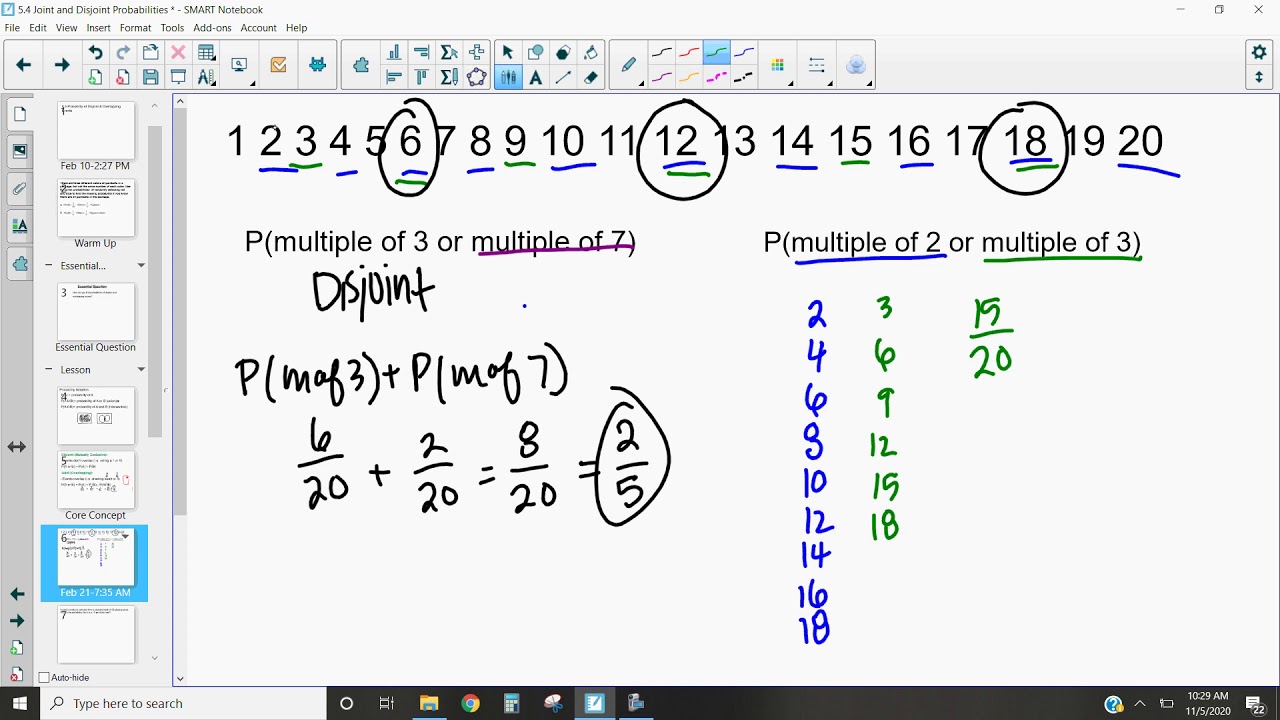 5.4 Joint and Disjoint Probabilities * - SMART Notebook
File Edit View Insert Format Tools Add-ons Account Help
1 2 3 4 5 6 7 8 9 10 11 12 13 14 15 16 17 18 19 20
P(multiple of 3 or multiple of 7)
Disjoint
P(m of 3) + P(m of 7)
6/20 + 2/20 = 8/20 = 2/5
P(multiple of 2 or multiple of 3)
2 3 15/20
4 6
6 9
8 12
10 15
12 18
14
16
18
1
Feb 10-2:27 PM
2
Warm Up
Essential...
3 Essential Question
Essential Question
Lesson
4
5
Core Concept
6
Feb 21-7:35 AM
7
Auto-hide
Type here to search
10:29 AM
11/5/2020
22